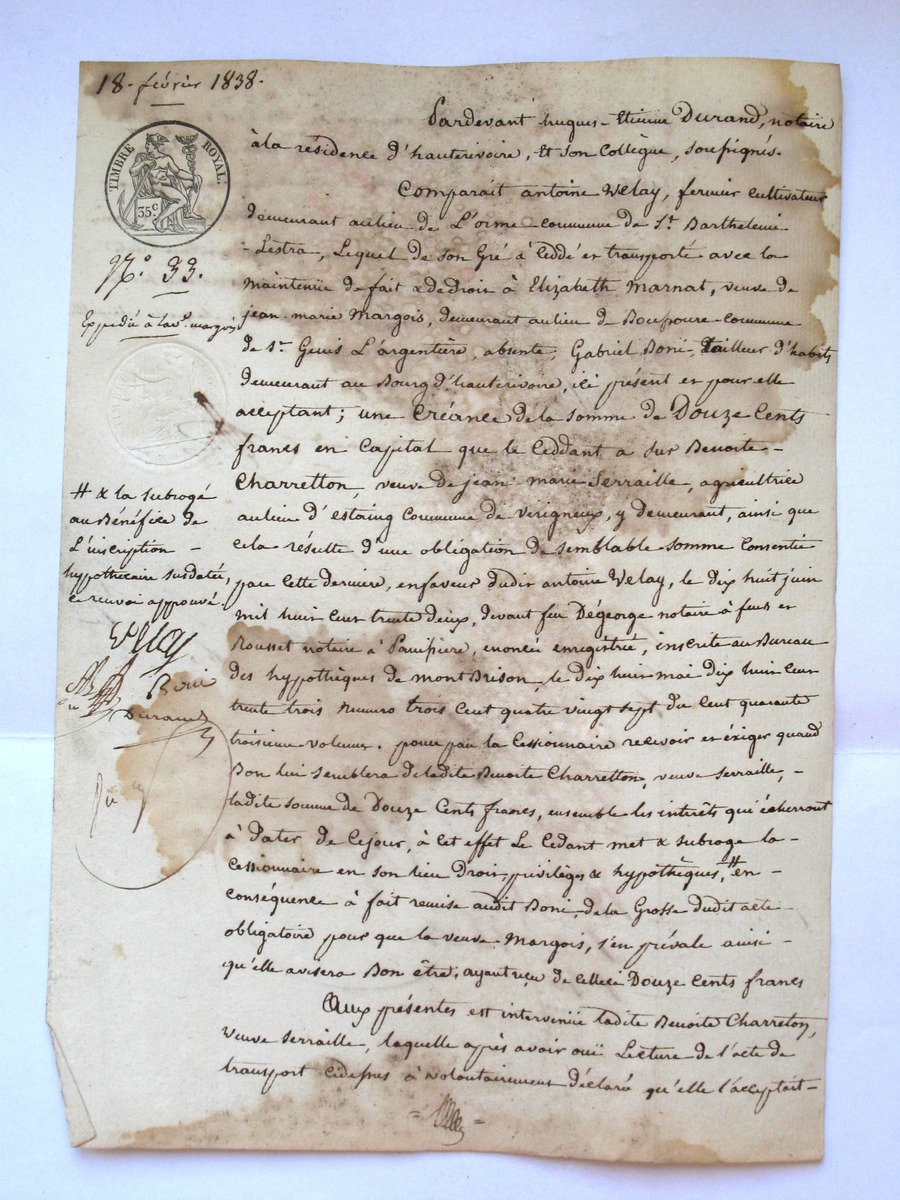 18. février 1838.
TIMBRE ROYAL.
35c
N.° 33.
Expédié à la v.e margois
Pardevant hugues-Etienne Durand, notaire
à la résidence d'hauterivoire, Et son Collègue, soussignés.
Comparait antoine Velay, fermier cultivateur
demeurant au lieu de L'orme commune de S.t Barthelemi
-Lestra, Lequel de son Gré à Ceddé et transporté avec la
maintenüe de fait & de droit à Elizabeth Marnat, veuve de
jean-marie Margois, demeurant au lieu de commune
de S.t Genis L'argentière, absente, Gabriel Boni, Tailleur d'habits
demeurant au Bourg d'hauterivoire, ici présent et pour elle
acceptant; une Créance de la somme de Douze Cents
francs en Capital que le Ceddant a sur Benoite
Charretton, veuve de jean marie Serraille, agricultrice
au lieu d'estaing Commune de virigneux, y demeurant, ainsi que
cela résulte d'une obligation de semblable somme Consentie
par cette dernière, en faveur dudit antoine Velay, le dix huit juin
mil huit cent trente deux, devant feu Dégeorge notaire à feurs et
Rousset notaire à Panissière, énoncée enregistrée, inscrite au Bureau
des hypothèques de montBrison, le dix huit mai dix huit cent
trente trois numero trois Cent quatre vingt sept du Cent quarante
troisieme volume. pour par la Cessionnaire recevoir et éxiger quand
Bon lui Semblera de ladite Benoite Charretton, veuve Serraille,
ladite somme de Douze Cents francs, ensemble les intérêts qui écherront
à Dater de Cejour, à cet effet Le Cédant met & subroge la
cessionnaire en son lieu Droits, privilèges & hypothèques, # en
conséquence à fait remise audit Boni, de la Grosse dudit acte
obligatoire pour que la veuve Margois, s'en prévale ainsi
qu'elle avisera Bon être; ayant reçu de celleci Douze Cents francs
Aux présentes est intervenüe ladite Benoite Charreton,
veuve Serraille, laquelle après avoir ouï Lecture de l'acte de
transport cidessus à volontairement déclaré qu'elle l'acceptait
# & la subrogé
au Bénéfice de
L'inscription
hypothécaire susdatée,
ce renvoi approuvé.
Velay
Boni
Durand